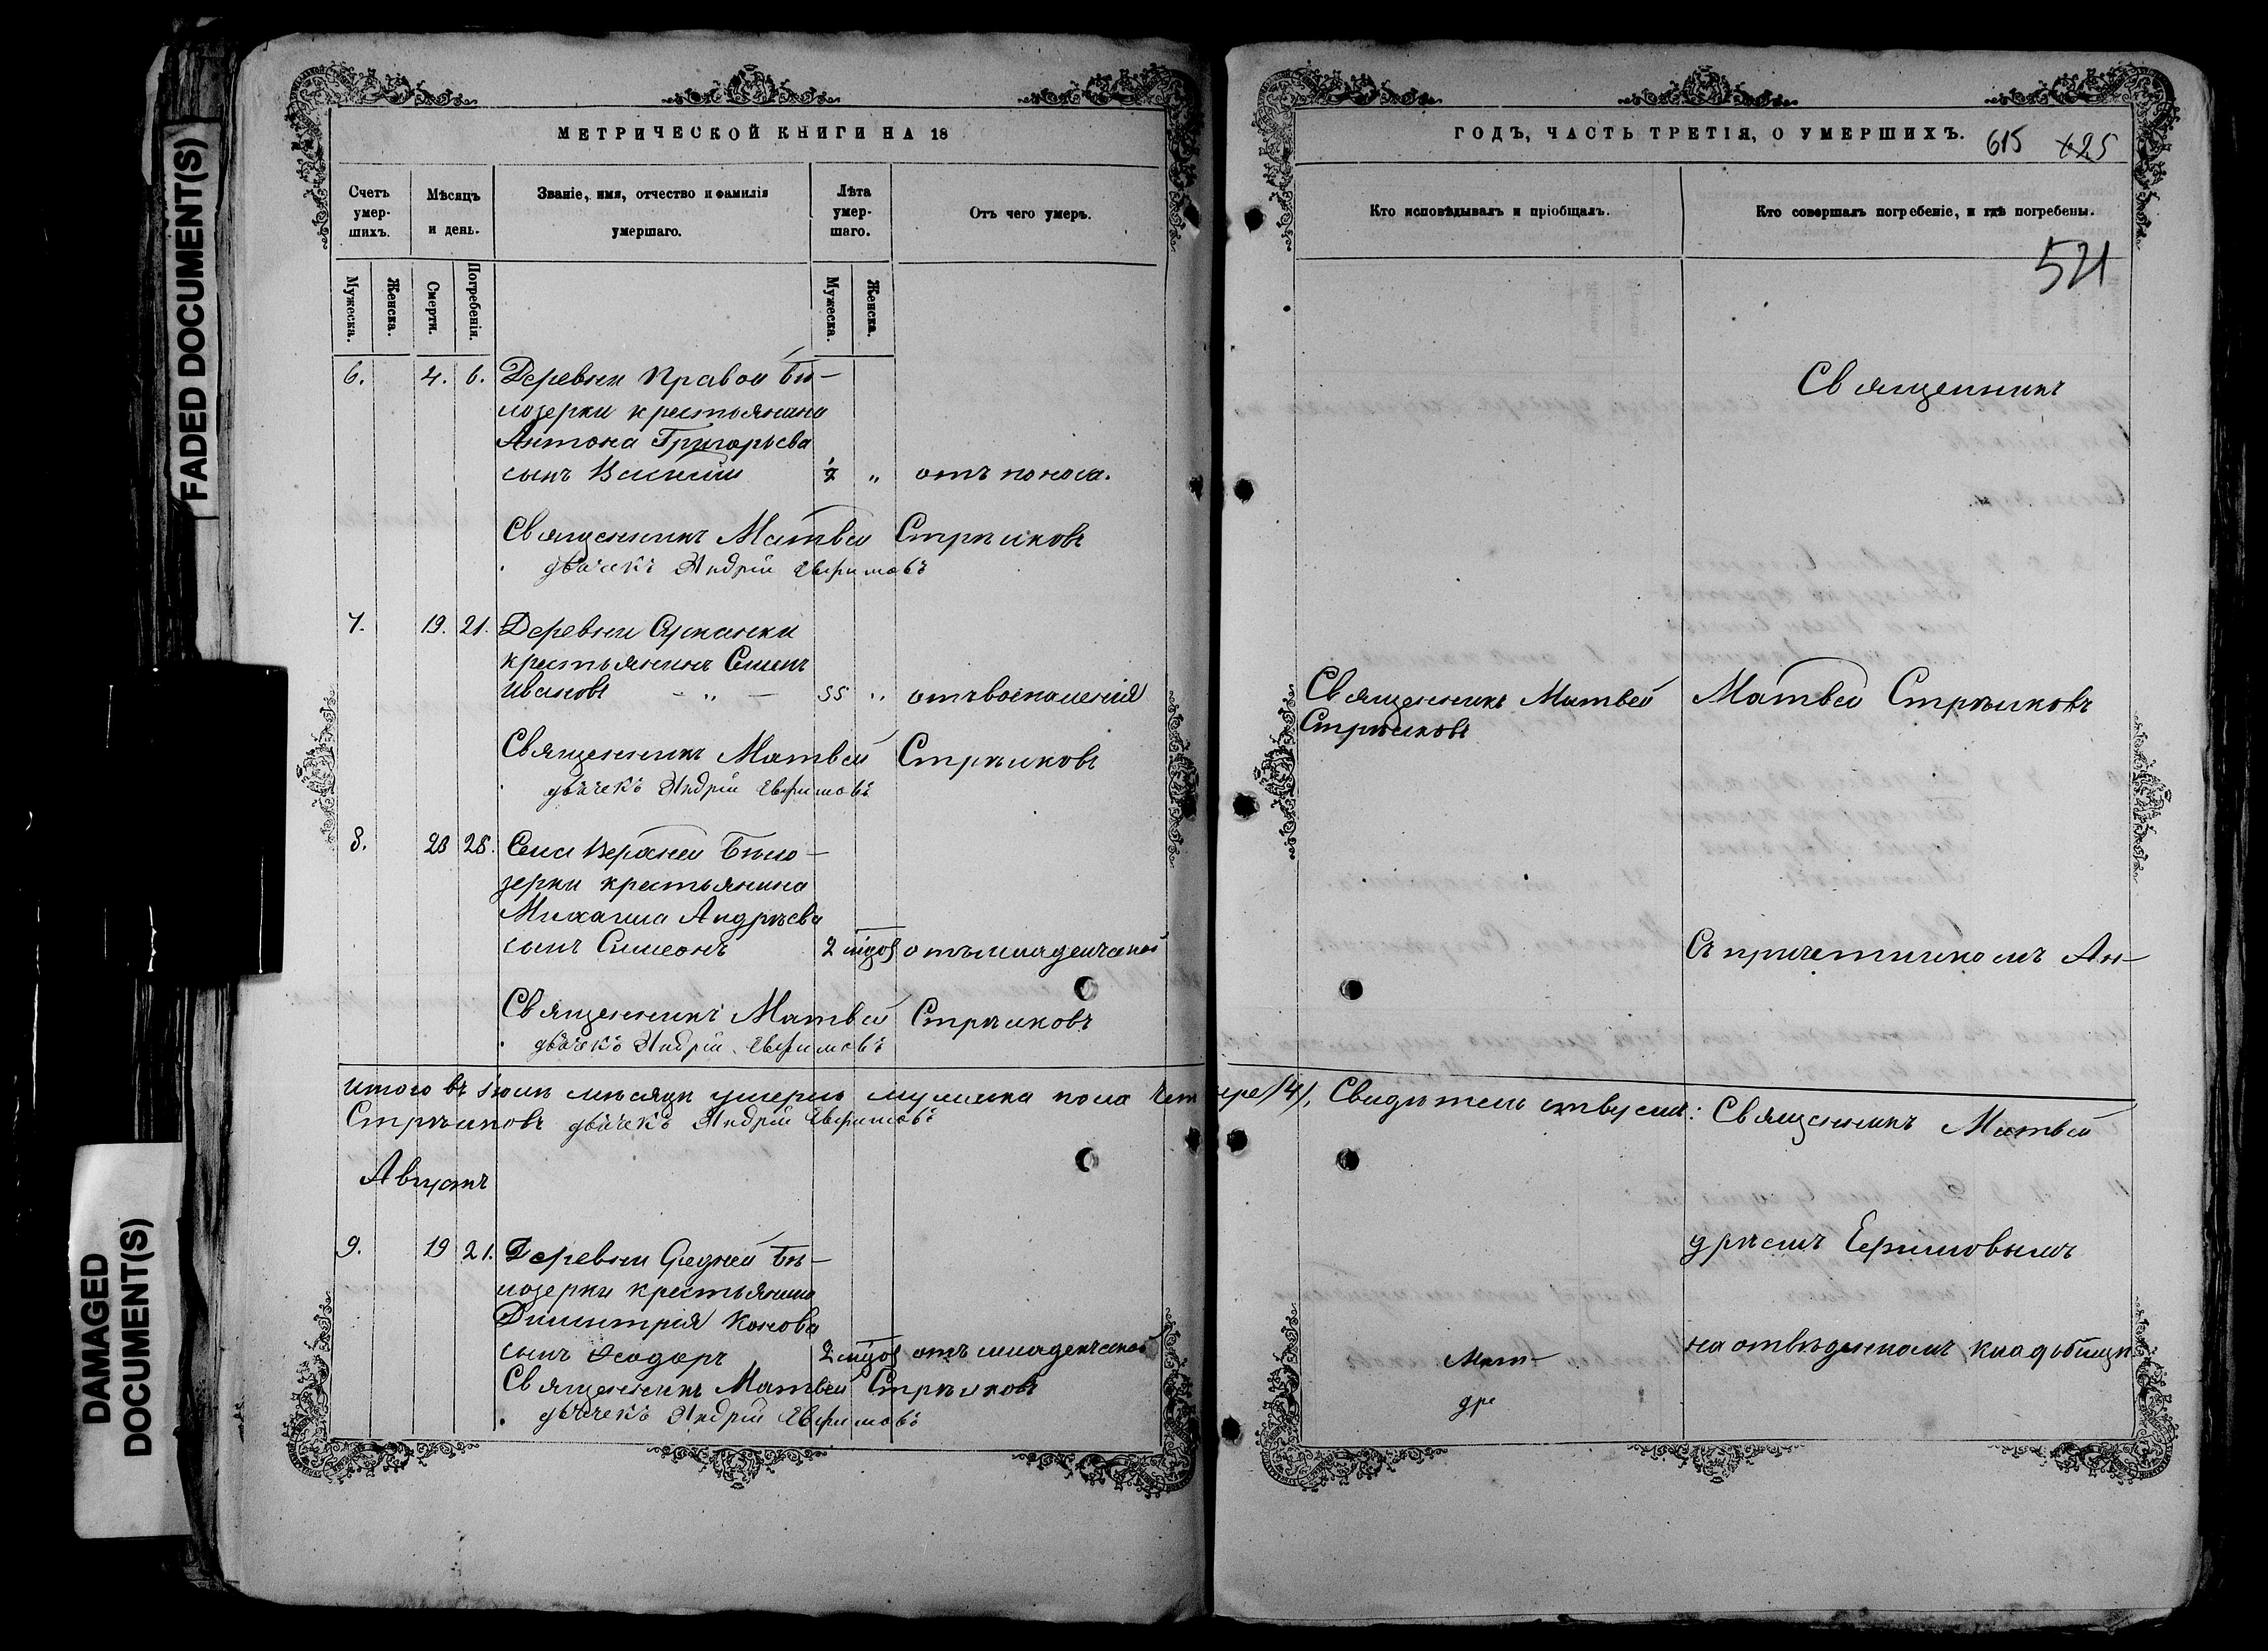 FADED DOCUMENT(S)
DAMAGED
DOCUMENT(S)
МЕТРИЧЕСКОЙ КНИГИ НА 18
Счетъ умер-шихъ.
Мѣсяцъ и день.
Званіе, имя, отчество и фамилія умершаго.
Лѣта умер-шаго.
Отъ чего умеръ.
Мужеска.
Женска.
Смерти.
Погребенія.
Мужеска.
Женска.
6. 4. 6. Деревни Правой Бѣ-
лозерки крестьянина
Антона Григорьева
сынъ Василій „ отъ поноса.
Священникъ Матвей Стрѣлковъ
дьячекъ Андрій Евфимовъ
7. 19. 21. Деревни Сусканки
крестьянинъ Семенъ
Ивановъ — „ — 55 „ отъ воспаленія
Священникъ Матвей Стрѣлковъ
дьячекъ Андрій Евфимовъ
8. 28 28. Села Верхней Бѣло-
зерки крестьянина
Михаила Андрѣева
сынъ Симеонъ 2 отъ младенческой
Священникъ Матвей Стрѣлковъ
дьячекъ Андрій Евфимовъ
Итого въ Іюлѣ мѣсяцѣ умерло мужеска пола четыре (4). Свидѣтельствуемъ: Священникъ Матвей
Стрѣлковъ дьячекъ Андрій Евфимовъ
Августъ
9. 19 21. Деревни Средней Бѣ-
лозерки крестьянина
Димитрія Конова
сынъ Ѳеодоръ 2 отъ младенческой
Священникъ Матвей Стрѣлковъ
дьячекъ Андрій Евфимовъ
ГОДЪ, ЧАСТЬ ТРЕТІЯ, О УМЕРШИХЪ.
615 625
Кто исповѣдывалъ и пріобщалъ.
Кто совершалъ погребеніе, и гдѣ погребены.
521
Священникъ
Священникъ Матвей
Стрѣлковъ
Матвей Стрѣлковъ
Съ причетникомъ Ан-
дрѣемъ Ефимовымъ
на отвѣденномъ кладбищѣ
Мат-
дре